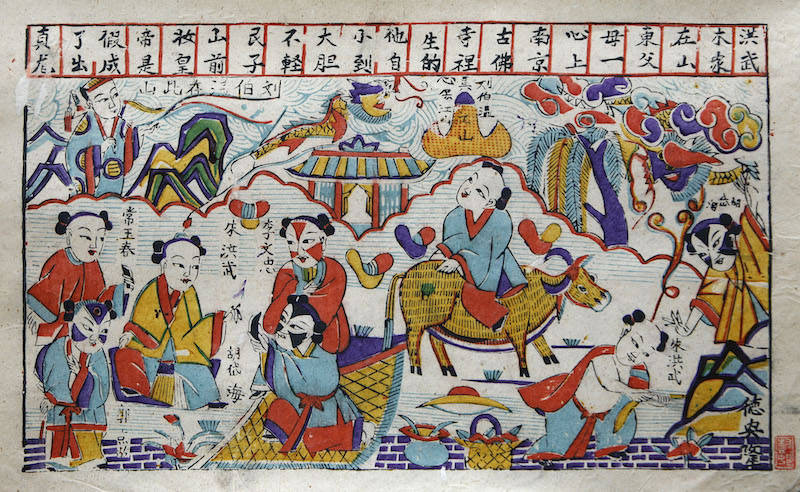 洪武木家在山東父母一心上南京古佛寺裡生的他自小到大胆不輕艮子山前妆皇帝是假成了出真龙
刘伯温在此山
刘伯温
常王春
朱洪武
李文忠
胡岱海
朱洪武
郭